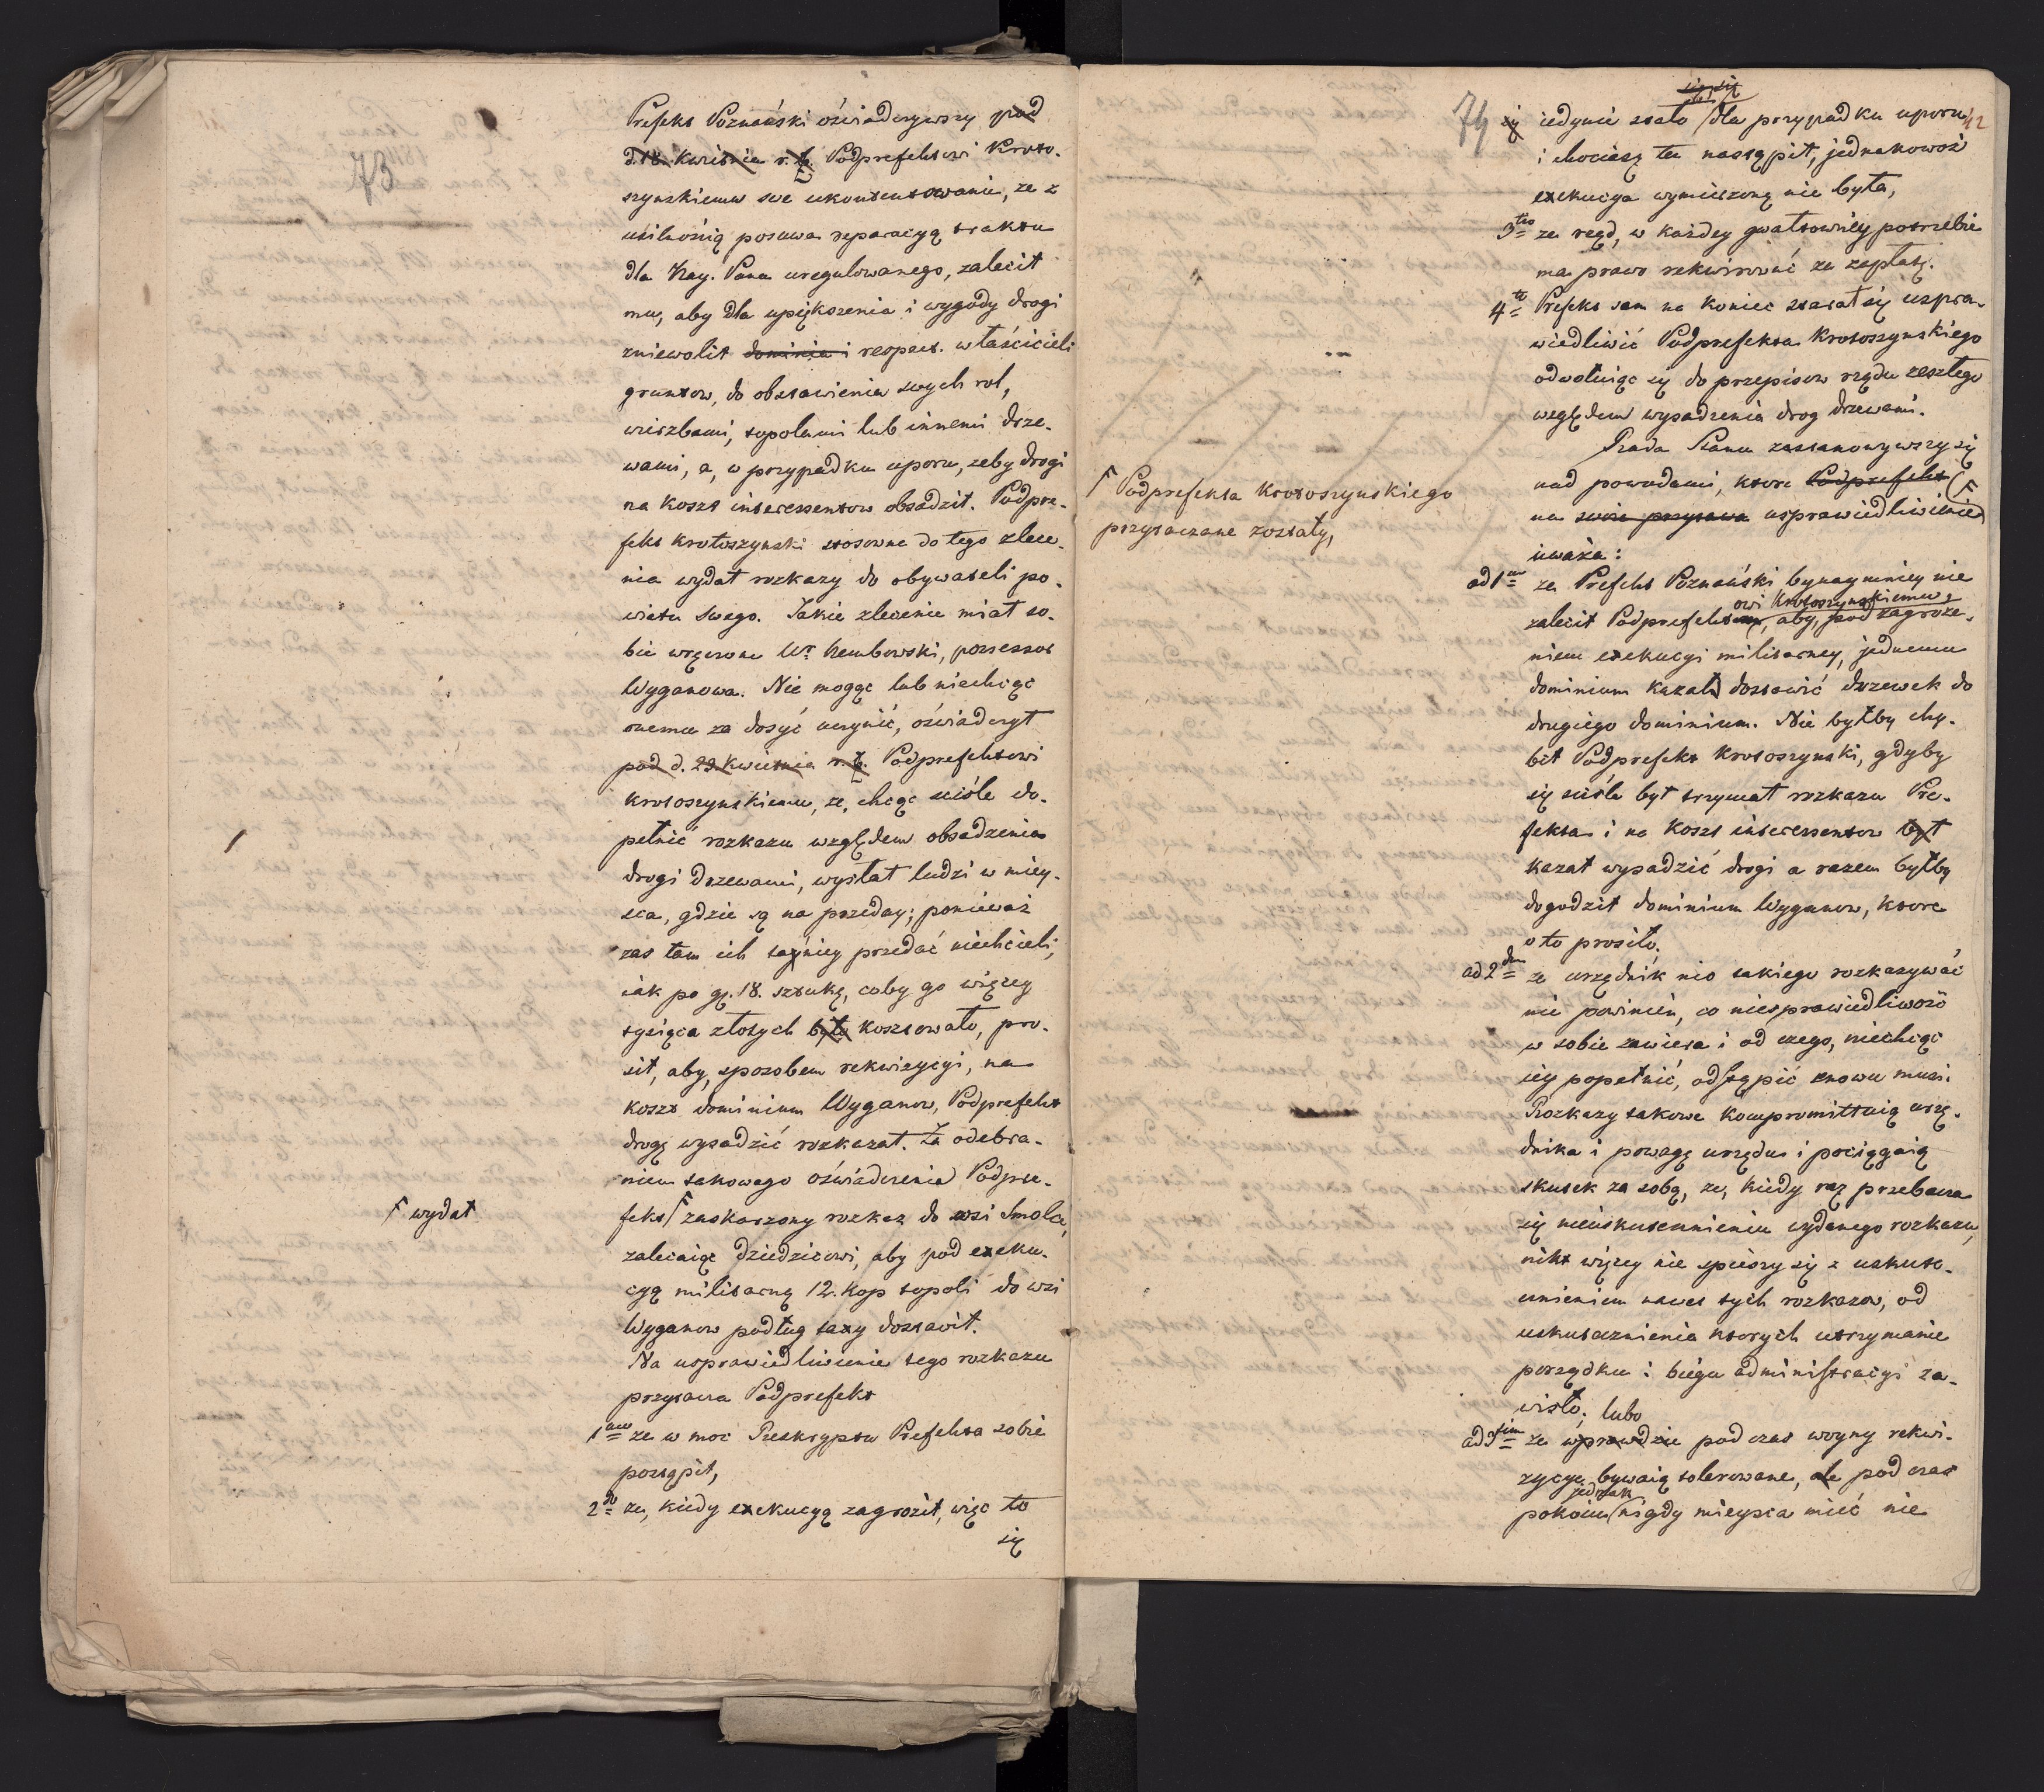 73
Prefekt Poznański oświadczywszy pod
d. 18. kwietnia r. b. Podprefektowi Kroto-
szynskiemu swe ukontentowanie, ze z
usilnością posuwa reparacyą traktu
dla Nay. Pana uregulowanego, zalecił
mu, aby dla upiększenia i wygody drogi
zniewolił dominia i respect. właścicieli
gruntow, do obstawienia swych rol,
wierzbami, topolami lub innemi drze-
wami, a, w przypadku uporu, zeby drogi
na koszt interessentow obsadził. Podpre-
fekt Krotoszynski stosowne do tego zlece-
nia wydał rozkazy do obywateli po-
wiatu swego. Takie zlecenie miał so-
bie wręczone Wr. Kembowski, possessor
Wyganowa. Nie mogąc lub niechcąc
onemu za dosyć uczynić, oświadczył
pod d. 29. Kwietnia r. b. Podprefektowi
Krotoszynskiemu, ze, chcąc ściśle do-
pełnić rozkazu względem obsadzenia
drogi drzewami, wysłał ludzi w miey-
sca, gdzie są na przeday; ponieważ
zas tam ich tayniey przedać niechcieli,
iak po gr. 18. sztukę, coby go więcey
tysiąca złotych było kosztowało, pro-
sił, aby, sposobem rekwizycyi, na
koszt dominium Wyganow, Podprefekt
drogę wysadzić rozkazał. Za odebra-
niem takowego oświadczenia Podpre-
fekt Γ zaskarzony rozkaz do wsi Smolce,
Γ wydał
zalecaiąc dziedzicowi, aby pod exeku-
cyą militarną 12. kop topoli do wsi
Wyganow podług taxy dostawił.
Na usprawiedliwienie tego rozkazu
przytacza Podprefekt
1mo ze w moc Reskryptu Prefekta sobie
postąpił,
2do ze, kiedy exekucyą zagroził, więc to
się
74
42
się iedynie stało dla przypadku uporu
i chociasz ten nastąpił, jednakowoż
exekucya wymierzoną nie była,
3tio ze rząd, w każdey gwałtowney potrzebie
ma prawo rekwirować za zapłatą.
4to Prefekt sam na koniec starał się uspra-
wiedliwić Podprefekta Krotoszynskiego
odwołuiąc się do przepisow rządu zeszłego
względem wysadzenia drog drzewami.
Rada Stanu zastanowywszy się
nad powodami, ktore Podprefekt Γ
Γ Podprefekta Krotoszynskiego
przytaczane zostały,
na swoie przytacza usprawiedliwienie
uważa:
ad 1um ze Prefekt Poznański bynaymniey nie
owi Krotoszynskiemu,
zalecił Podprefekt, aby, pod zagroże-
niem exekucyi militarney, jednemu
dominium kazał dostawić drzewek do
drugiego dominium. Nie byłby chy-
bił Podprefekt Krotoszynski, gdyby
się ściśle był trzymał rozkazu Pre-
fekta i na koszt interessentow był
kazał wysadzić drogi a razem byłby
dogodził dominium Wyganow, ktore
o to prosiło.
ad 2dum ze urzędnik nic takiego rozkazywać
nie powinien, co niesprawiedliwość
w sobie zawiera i od czego, niechcąc
iey popełnić, odstąpić znowu musi.
Rozkazy takowe kompromittuią urzę-
dnika i powagę urzędu i pociągaią
skutek za sobą, ze, kiedy raz przebacza
się nieuskutecznieniu wydanego rozkazu,
nikt więcey nie spieszy się z uskute-
cznieniem nawet tych rozkazow, od
uskutecznienia ktorych utrzymanie
porządku i biegu administracyi za-
wisło.
lubo
ad 3tium ze wprawdzie podczas woyny rekwi-
zycye bywaią tolerowane, ale podczas
jednak
pokoiu nigdy mieysca mieć nie